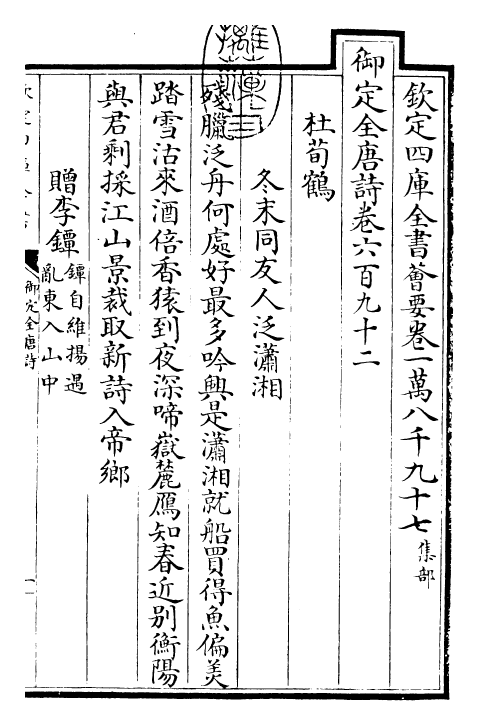 欽定四庫全書薈要卷一萬八千九十七 集部
御定全唐詩卷六百九十二
杜荀鶴
冬末同友人泛瀟湘
殘臘泛舟何處好最多吟興是瀟湘就船買得魚偏美
踏雪沽來酒倍香猿到夜深啼嶽麓鴈知春近別衡陽
與君剩採江山景裁取新詩入帝鄉
贈李鐔 鐔自維揚遇
亂東入山中
御定全唐詩
一